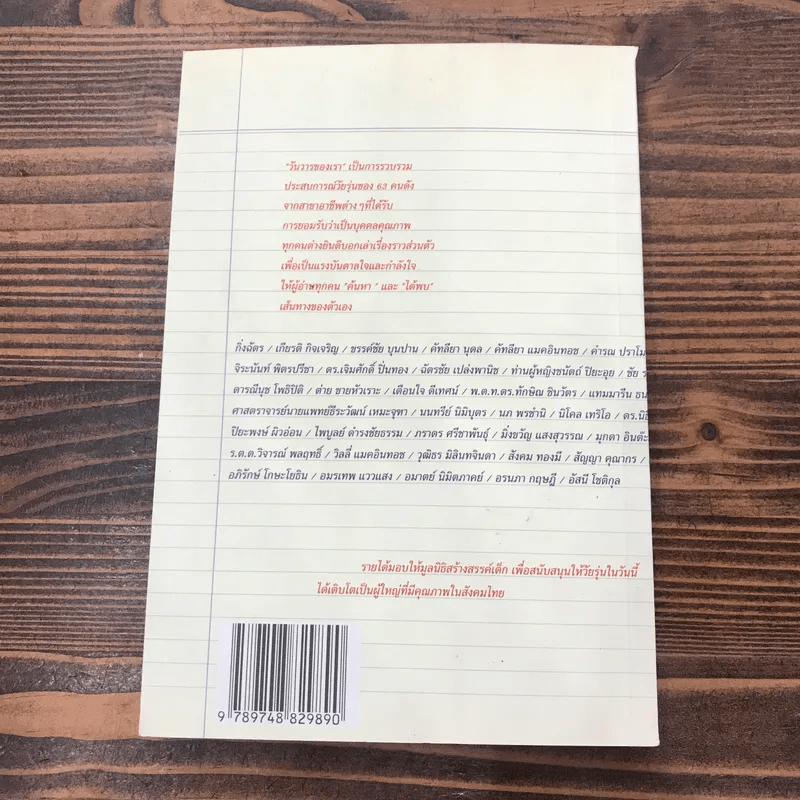 "วันวารของเรา" เป็นการรวบรวม
ประสบการณ์วัยรุ่นของ 63 คนดัง
จากสาขาอาชีพต่าง ๆ ที่ได้รับ
การยอมรับว่าเป็นบุคคลคุณภาพ
ทุกคนต่างยินดีบอกเล่าเรื่องราวส่วนตัว
เพื่อเป็นแรงบันดาลใจและกำลังใจ
ให้ผู้อ่านทุกคน "ค้นหา " และ "ได้พบ"
เส้นทางของตัวเอง
กิ่งฉัตร / เกียรติ กิจเจริญ / ขรรค์ชัย บุนปาน / คัทลียา นุดล / คัทลียา แมคอินทอช / คำรณ ปราโม
จิระนันท์ พิตรปรีชา / ดร.เจิมศักดิ์ ปิ่นทอง / ฉัตรชัย เปล่งพานิช / ท่านผู้หญิงชนัตถ์ ปิยะอุย / ชัย
ดารณีนุช โพธิปิติ / ต่าย ขายหัวเราะ / เตือนใจ ดีเทศน์ / พ.ต.ท.ดร.ทักษิณ ชินวัตร / แทมมารีน ธน
ศาสตราจารย์นายแพทย์ธีระวัฒน์ เหมะจุฑา / นนทรีย์ นิมิบุตร / นภ พรชำนิ / นิโคล เทริโอ / ดร.นิธิ
ปิยะพงษ์ ผิวอ่อน / ไพบูลย์ ดำรงชัยธรรม / ภราดร ศรีชาพันธุ์ / มิ่งขวัญ แสงสุวรรณ / มุกดา อินต๊ะ
ร.ต.ต.วิจารณ์ พลฤทธิ์ / วิลลี่ แมคอินทอช / วุฒิธร มิลินทจินดา / สังคม ทองมี / สัญญา คุณากร /
อภิรักษ์ โกษะโยธิน / อมรเทพ แววแสง / อมาตย์ นิมิตภาคย์ / อรนภา กฤษฎี / อัสนี โชติกุล
รายได้มอบให้มูลนิธิสร้างสรรค์เด็ก เพื่อสนับสนุนให้วัยรุ่นในวันนี้
ได้เติบโตเป็นผู้ใหญ่ที่มีคุณภาพในสังคมไทย
9 789748 829890